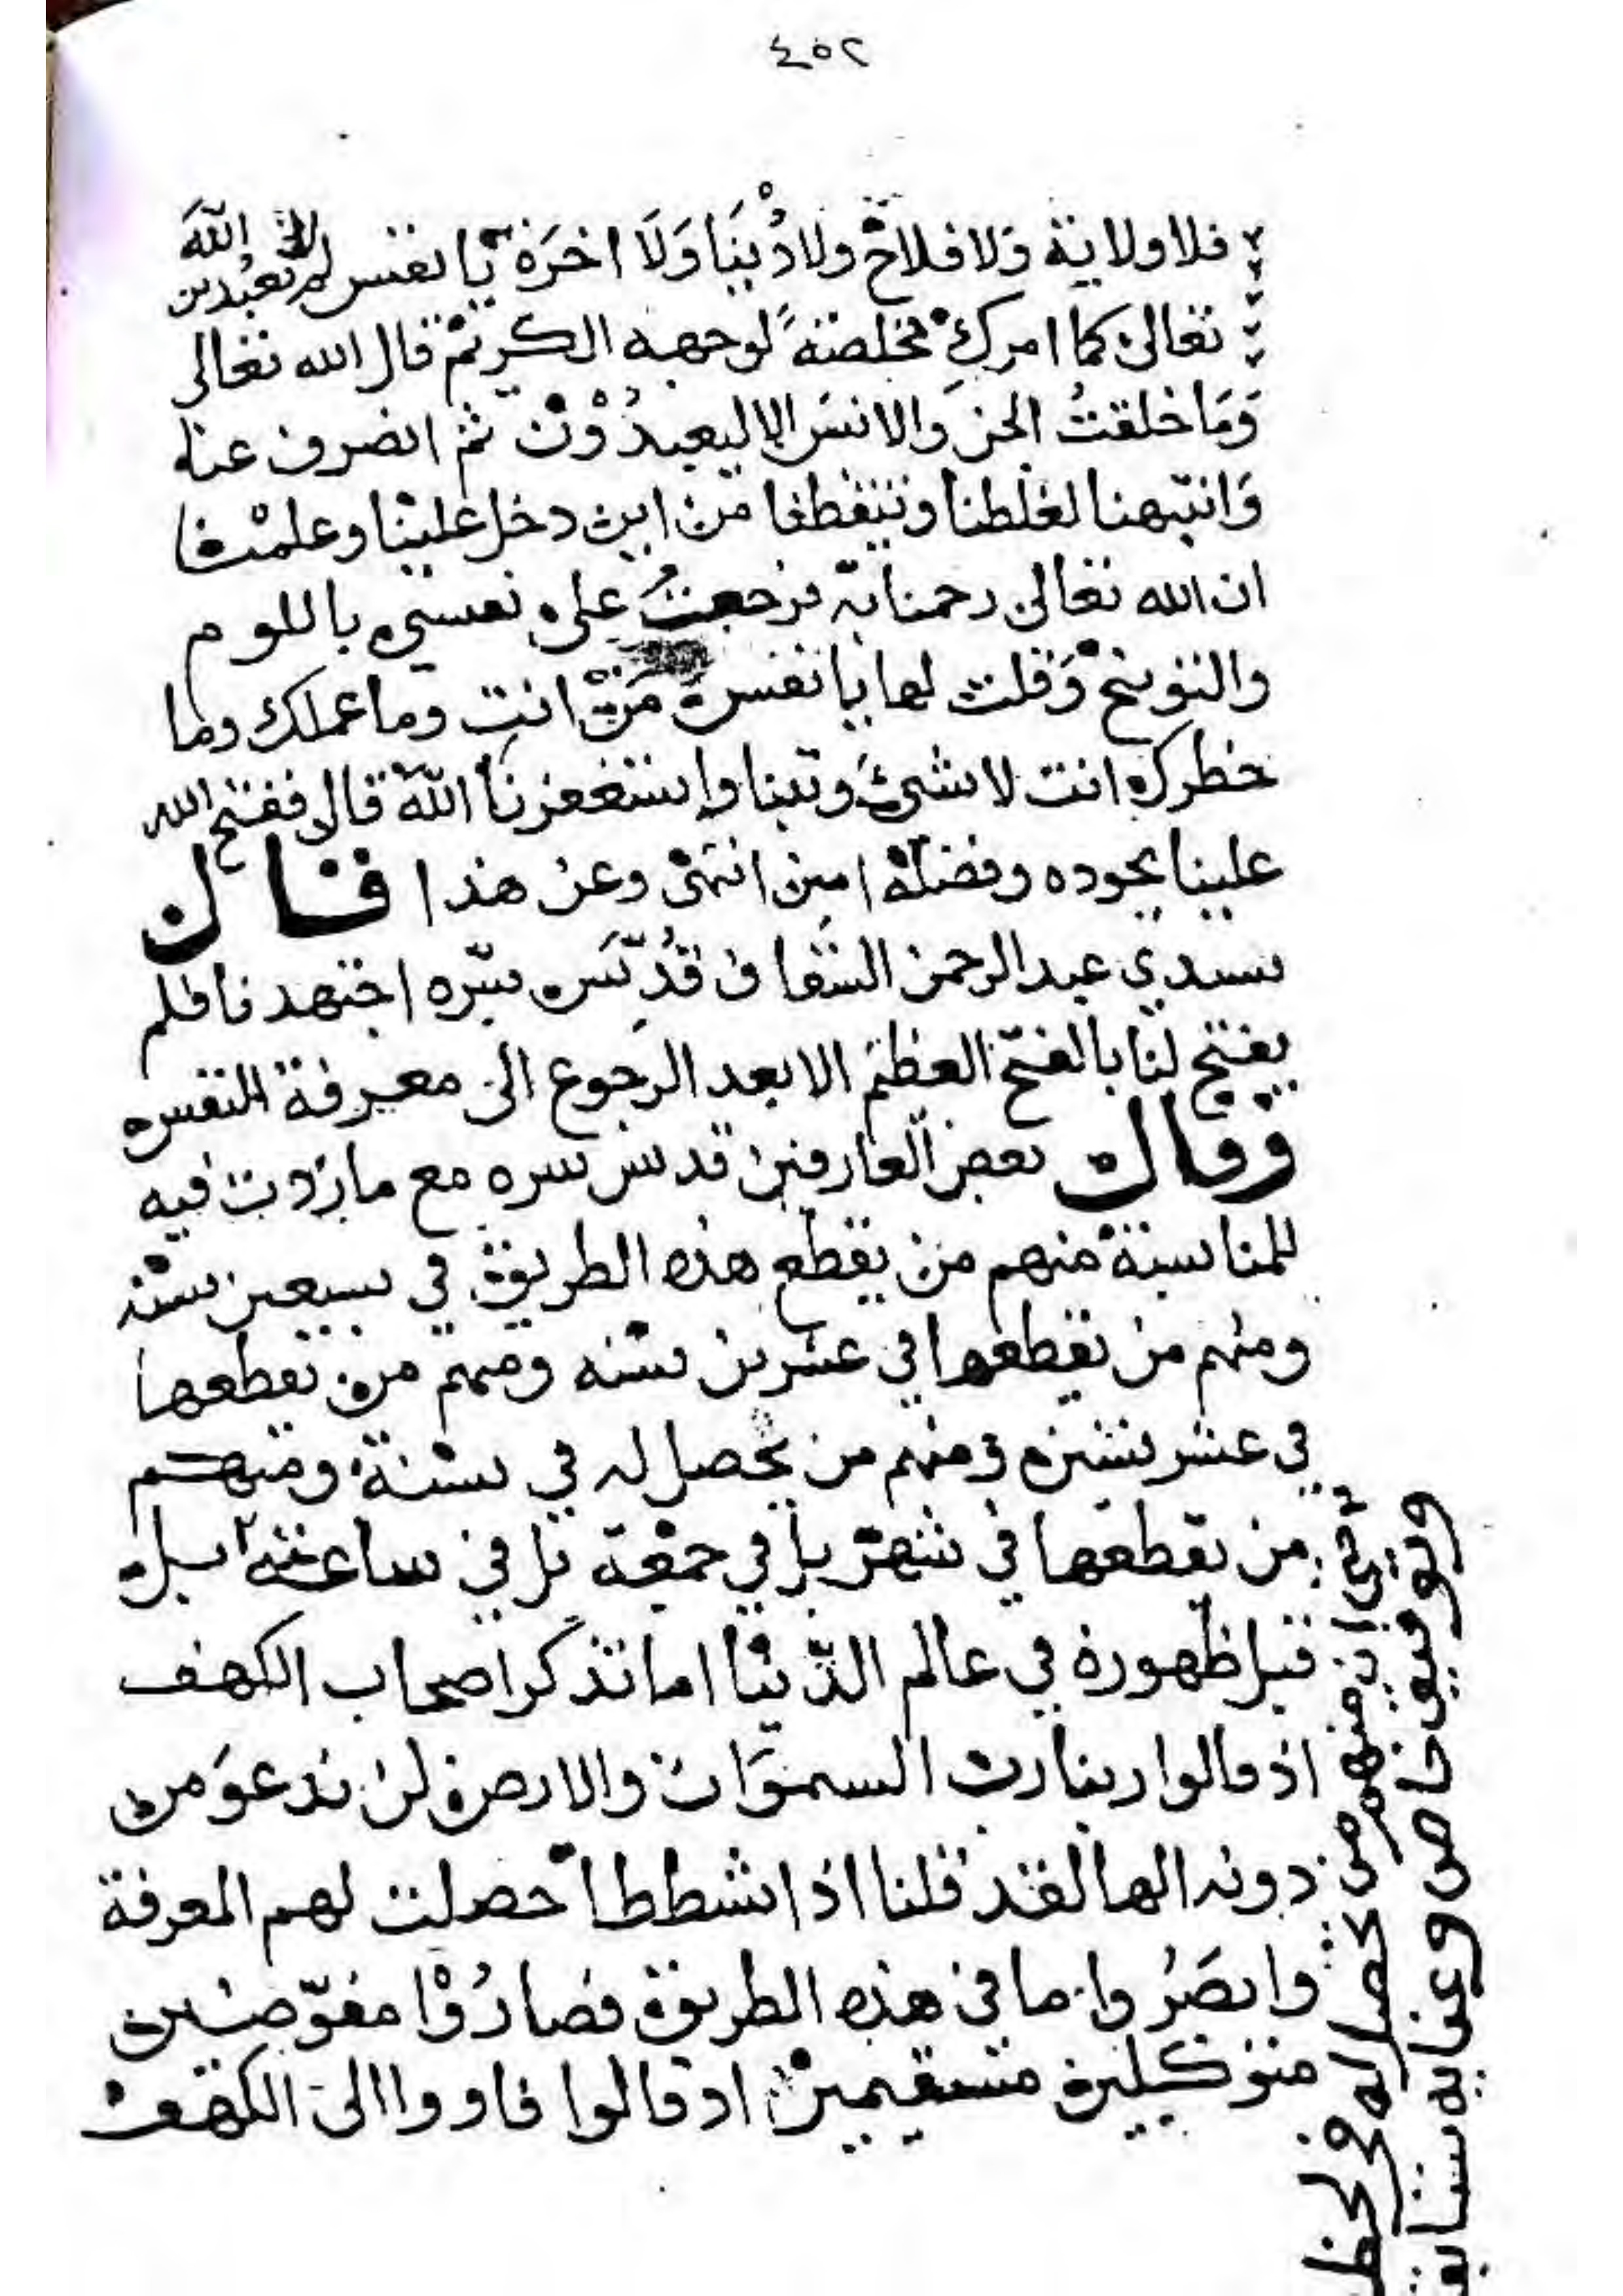 ٤٥٢
فلا ولاية وَلا فلاحْ ولا دُنْيَا وَلَا اخرَة يا نفس لم تعبدين اللهَ
تعالى كما امركِ مخلصةً لوجهه الكريم قال الله تعالى
وَمَا خلقتُ الجن والانسَ الا ليعبدُوْن ثم انصرف عنا
وَانتبهنا لغلطنا وتيقظنا من اين دخل علينا وعلمنا
ان الله تعالى رحمنا به فرجعتُ على نفسي باللوم
والتوبيخ وَقلت لها يا نفس مَنْ انتِ وما عملك وما
خطرك انت لا شئ وتبنا واستغفرنا اللهَ قال ففتح الله
علينا بجوده وفضله امين انتهى وعن هذا قال
سيدي عبد الرحمن السقاف قُدِّسَ سرّه اجتهدنا فلم
يفتح لنا بالفتح العظيم الا بعد الرجوع الى معرفة النفس
وقال بعض العارفين قدس سره مع ما زدت فيه
للمناسبة منهم من يقطع هذه الطريق في سبعين سنة
ومنهم من يقطعها في عشرين سنه ومنهم من يقطعها
في عشر سنين ومنهم من يحصل له في سنة ومنهم
من يقطعها في شهر بل في جمعة بل في ساعة بل
قبل ظهوره في عالم الدّنيا اما تذكر اصحاب الكهف
اذ قالوا ربنا رب السموَات والارض لن ندعوَ من
دونه الها لقد قلنا اذا شططا حصلت لهم المعرفة
وابصَرُوا ما في هذه الطريق فصارُوْا مفوّضين
متوكلين مستقيمين اذ قالوا فاووا الى الكهف
حتى ان منهم من تحصل له في لحظ
وتوفيق خاص وعناية سابق